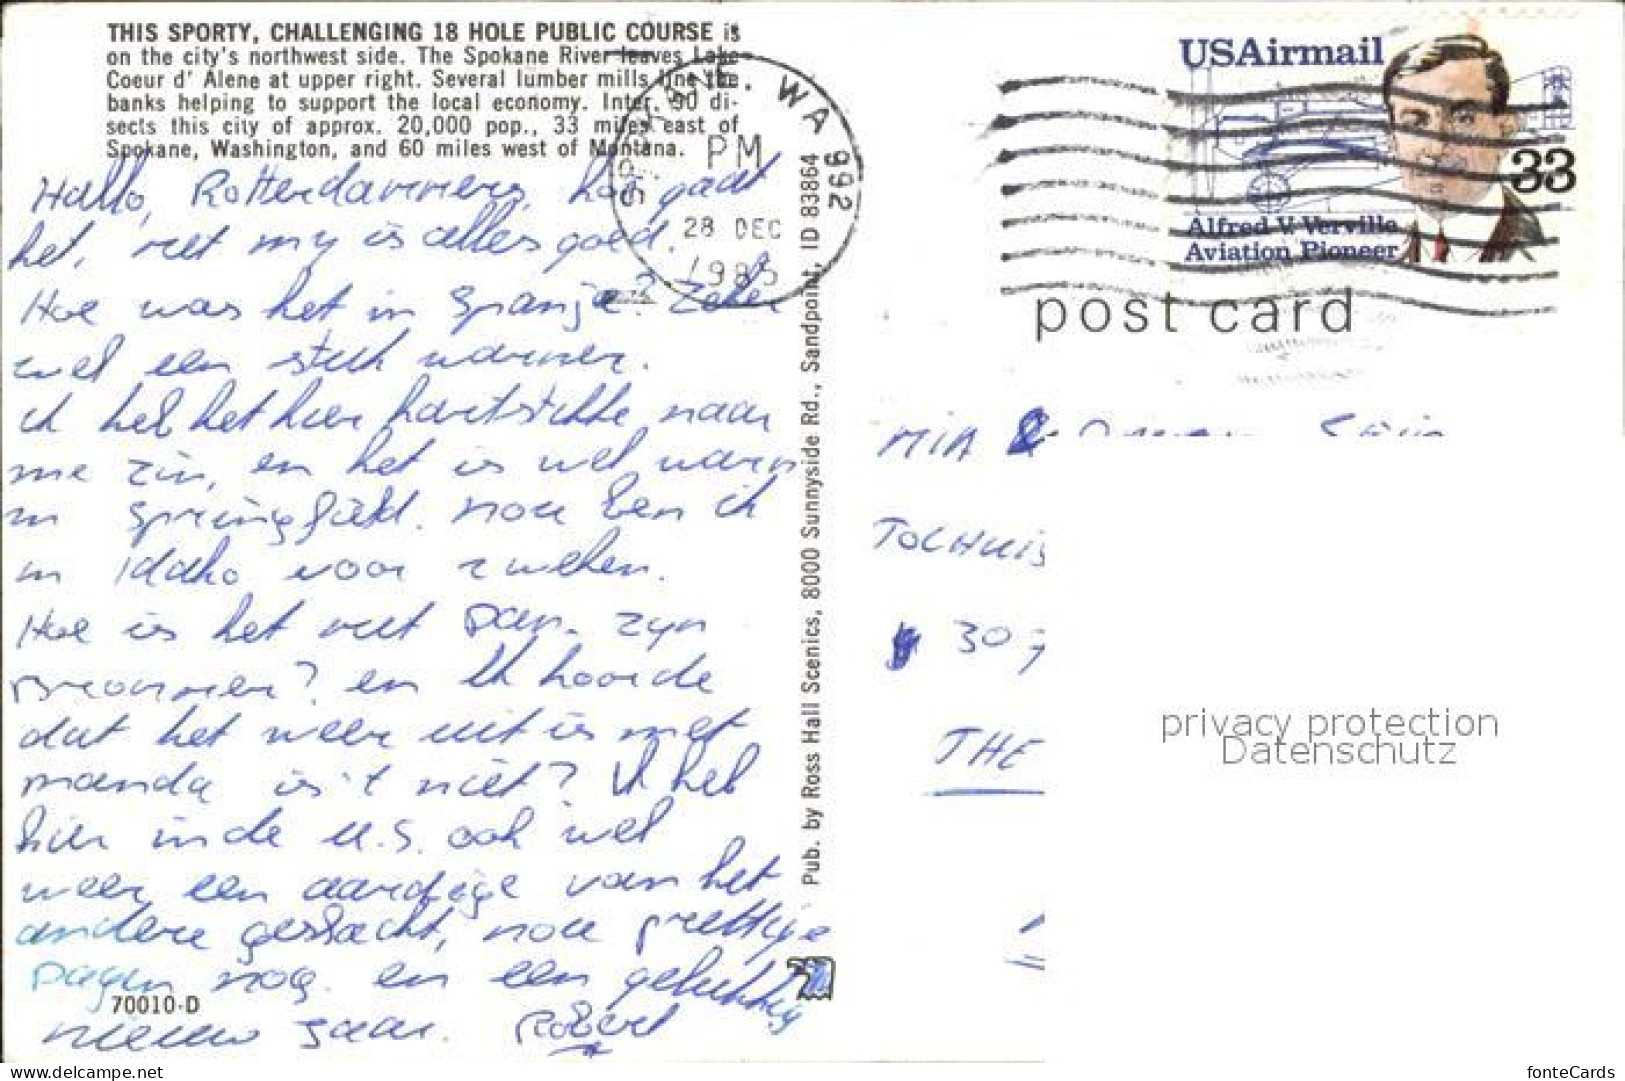 THIS SPORTY, CHALLENGING 18 HOLE PUBLIC COURSE is
on the city's northwest side. The Spokane River leaves Lake
Coeur d' Alene at upper right. Several lumber mills line the
banks helping to support the local economy. Inter. 90 di-
sects this city of approx. 20,000 pop., 33 miles east of
Spokane, Washington, and 60 miles west of Montana.
Hallo, Rotterdammers, hoe gaat
het, met my is alles goed.
Hoe was het in Spanje? Zeker
wel een stuk warmer.
ik heb het hier hartstikke naar
me zin, en het is wel warm
in Springfield. nou ben ik
in Idaho voor 2 weken.
Hoe is het met zyn
en Ik hoorde
dat het weer uit is met
manda is 't niet? Ik heb
hier in de U.S. ook wel
weer een aardige van het
andere geslacht, nou prettige
dagen nog en een gelukkig
nieuw jaar. Robert
70010-D
Pub. by Ross Hall Scenics, 8000 Sunnyside Rd., Sandpoint, ID 83864
WA
992
PM
28 DEC
1985
USAirmail
33
Alfred V. Verville
Aviation Pioneer
post card
MIA &
TOLHUIS
307
THE
privacy protection
Datenschutz
delcampe.net
fonteCards